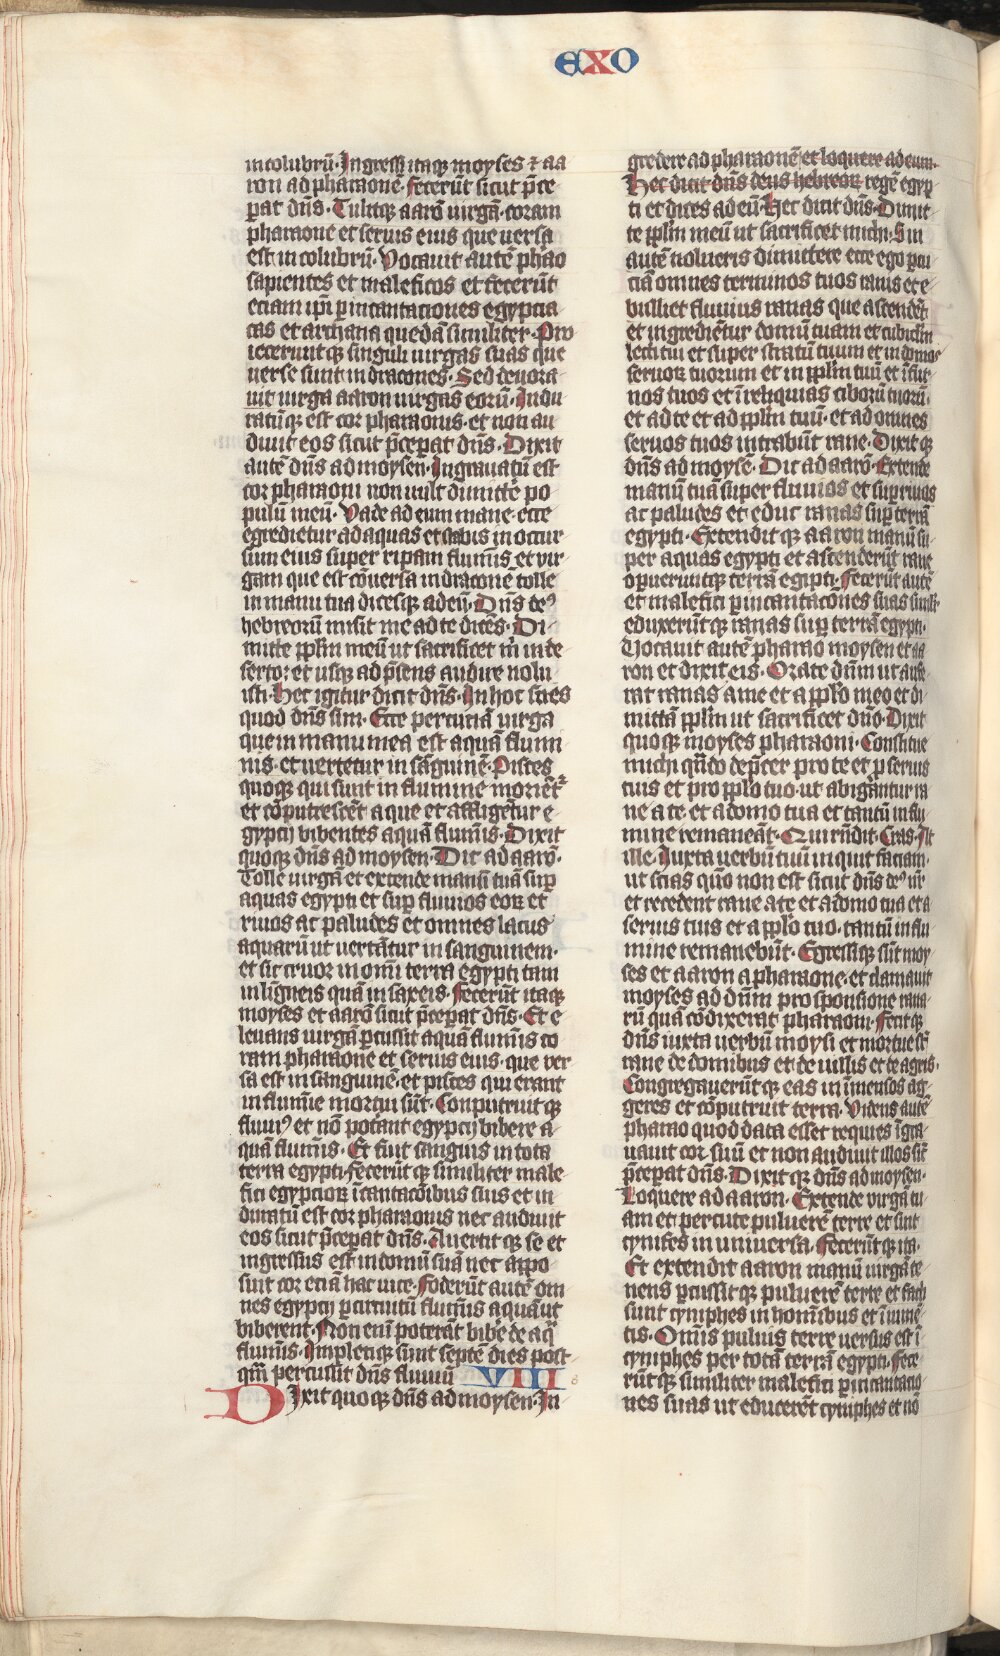 EXO
in colubrū. Ingressꝰ itaqꝫ moyses ⁊ aa
ron ad pharaonē. fecerūt sicut p̄ce
perat dn̄s. Tulitqꝫ aarō uirgā coram
pharaone et seruis eius que uersa
est in colubrū. Vocauit autē phāo
sapientes et maleficos et fecerūt
eciam ip̄i ꝑ incantaciones egyptia
cas et archana quedā similiter. Pro
ieceruntqꝫ singuli uirgas suas que
uerse sunt in dracones. Sed deuora
uit uirga aaron uirgas eorū. Indu
ratūqꝫ est cor pharaonis. et non au
diuit eos sicut p̄ceꝑat dn̄s. Dixit
autē dn̄s ad moysen. Ingrauatū est
cor pharaoni non uult dimitte̅ po
pulū meū. Vade ad eum mane. ecce
egredietur ad aquas et stabis in occur
sum eius super ripam fluminis et vir
gam que est cōuersa in draconē tolle
in manu tua dicesqꝫ ad eū. Dn̄s deꝰ
hebreorū misit me ad te dicēs. Di
mitte pp̄lm meū ut sacrificet m̄ in de
serto: et usqꝫ ad p̄sens audire nolu
isti. Hec igitur dicit dn̄s. In hoc scies
quod dn̄s sim. Ecce percutiā uirga
que in manu mea est aquā flumi
nis. et uertetur in sāguinē. Pisces
quoqꝫ qui sunt in flumine moriēt᷑
et cōputrescēt aque et affligētur e
gyptij bibentes aquā flumīs. Dixit
quoqꝫ dn̄s ad moysen. Dic ad aarō.
Tolle uirgā et extende manū tuā suꝑ
aquas egypti et suꝑ fluuios eoꝝ et
riuos ac paludes et omnes lacus
aquarū ut uertātur in sanguinem.
et sit cruor in omni terra egypti tam
in ligneis quā in saxeis. Fecerūt itaqꝫ
moyses et aarō sicut p̄ceꝑat dn̄s. Et e
leuans uirgā ꝑcussit aquā fluminis co
ram pharaone et seruis eius. que ver
sa est in sanguinē. et pisces qui erant
in flumīe mortui sūt. Conputruitqꝫ
fluuiꝰ et nō poterāt egyptij bibere a
quā fluminis. Et fuit sanguis in tota
terra egypti. Fecerūtqꝫ similiter male
fici egyptioꝝ īcantacōibus suis et in
duratū est cor pharaonis nec audiuit
eos sicut p̄ceꝑat dn̄s. Auertitqꝫ se et
ingressus est in domū suā nec appo
suit cor eciā hac uice. Foderūt autē om
nes egyptij ꝑ circuitū fluminis aquā ut
biberent. Non eni poterāt bibe̅ de aq̄
fluminis. Impletiqꝫ sunt septē dies post
qm̄ percussit dn̄s fluuiū VIII
Dixit quoqꝫ dn̄s ad moysen. In
gredere ad pharaonē et loquere ad eum.
Hec dicit dn̄s deus hebreoꝝ regē egyp
ti et dices ad eū. Hec dicit dn̄s. Dimit
te pp̄lm meū ut sacrificet michi. Sin
autē nolueris dimittere ecce ego ꝑcu
ciā omnes terminos tuos ranis et e
bulliet fluuius ranas que ascendēt
et ingrediētur domū tuam et cubiclm̄
lecti tui et super stratū tuum et in domos
seruoꝝ tuorum et in pp̄lm tuū et ī fur
nos tuos et ī reliquias ciborū tuorū.
et ad te et ad pp̄lm tuū. et ad omnes
seruos tuos intrabūt rane. Dixitqꝫ
dn̄s ad moysē. Dic ad aarō. Extende
manū tuā super fluuios et suꝑ riuos
ac paludes et educ ranas suꝑ terrā
egypti. Extenditqꝫ aaron manū su
per aquas egypti et ascenderūt rane
oꝑueruntqꝫ terrā egipti. Fecerūt autē
et malefici ꝑ incantacōnes suas simlr̄
eduxerūtqꝫ ranas suꝑ terrā egypti.
Vocauit autē pharao moysen et aa
ron et dixit eis. Orate dn̄m ut aufe
rat ranas a me et a pp̄lo meo et di
mittā pp̄lm ut sacrificet dn̄o. Dixit
quoqꝫ moyses pharaoni. Constitue
michi qn̄do dep̄cer pro te et ꝓ seruis
tuis et pro pp̄lo tuo. ut abigantur ra
ne a te et a domo tua et tantū in flu
mine remaneāt. Qui rn̄dit. Cras. At
ille. Iuxta uerbū tuū inquit faciam.
ut scias qm̄o non est sicut dn̄s deꝰ nr̄
et recedent rane a te et a domo tua et a
seruis tuis et a pp̄lo tuo. tantū in flu
mine remanebūt. Egressiqꝫ sūt moy
ses et aaron a pharaone. et clamauit
moyses ad dn̄m pro sponsione rana
rū quā cōdixerat pharaoni. Fecitqꝫ
dn̄s iuxta uerbū moysi et mortue st̄
rane de domibus et de uillis et de agris.
Congregauerūtqꝫ eas in īmensos ag
geres et cōputruit terra. Videns autē
pharao quod data esset requies īgra
uauit cor suū et non audiuit illos sic̄
p̄ceꝑat dn̄s. Dixitqꝫ dn̄s ad moysen.
Loquere ad aaron. Extende virgā tu
am et percute puluerē terre et sint
cynifes in uniuersa. Fecerūtqꝫ ita.
Et extendit aaron manū uirgā te
nens ꝑcussitqꝫ puluerē terre et facti
sunt cyniphes in homībus et ī iumē
tis. Omnis puluis terre uersus est ī
cyniphes per totā terrā egypti. Fece
rūtqꝫ similiter malefici ꝑ incantacio
nes suas ut educerēt cyniphes et nō